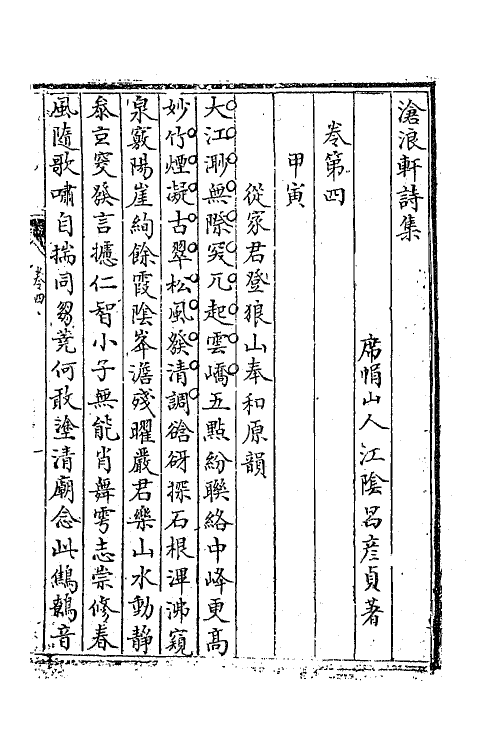 滄浪軒詩集
席帽山人江陰呂彦貞著
卷第四
甲寅
從家君登狼山奉和原韻
大江渺無際突兀起雲嶠五點紛聯絡中峰更高
妙竹煙凝古翠松風發清調硲砑探石根渾沸窺
泉竅陽崖絢餘霞陰峯澹殘曜嚴君樂山水動靜
叅玄窔發言攄仁智小子無能肖舞雩志崇修春
風隨歌嘯自揣同芻蕘何敢塗清廟念此鷦鷯音
卷四
一